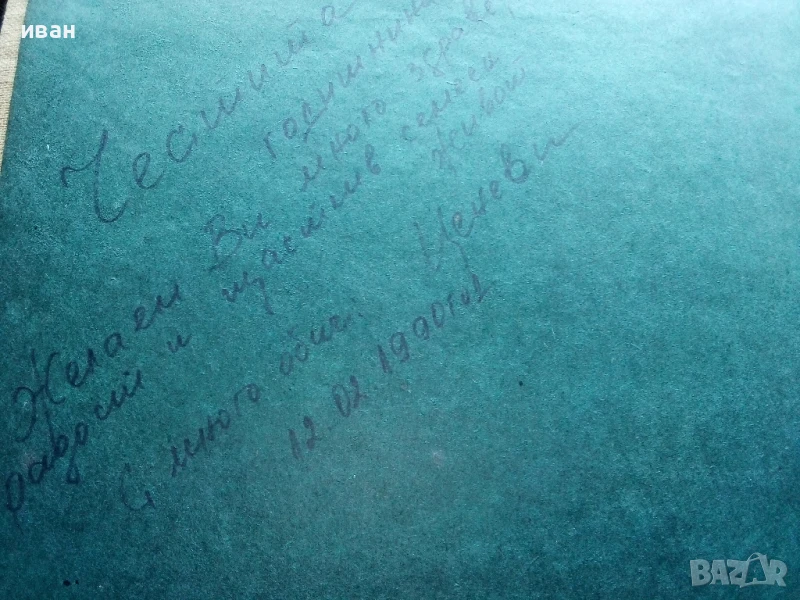 иван
Честита
годишнина
Желаем Ви много здраве,
радост и щастие в семеен
живот
С много обич. Ценеви
12.02.1990 год
BAZAR